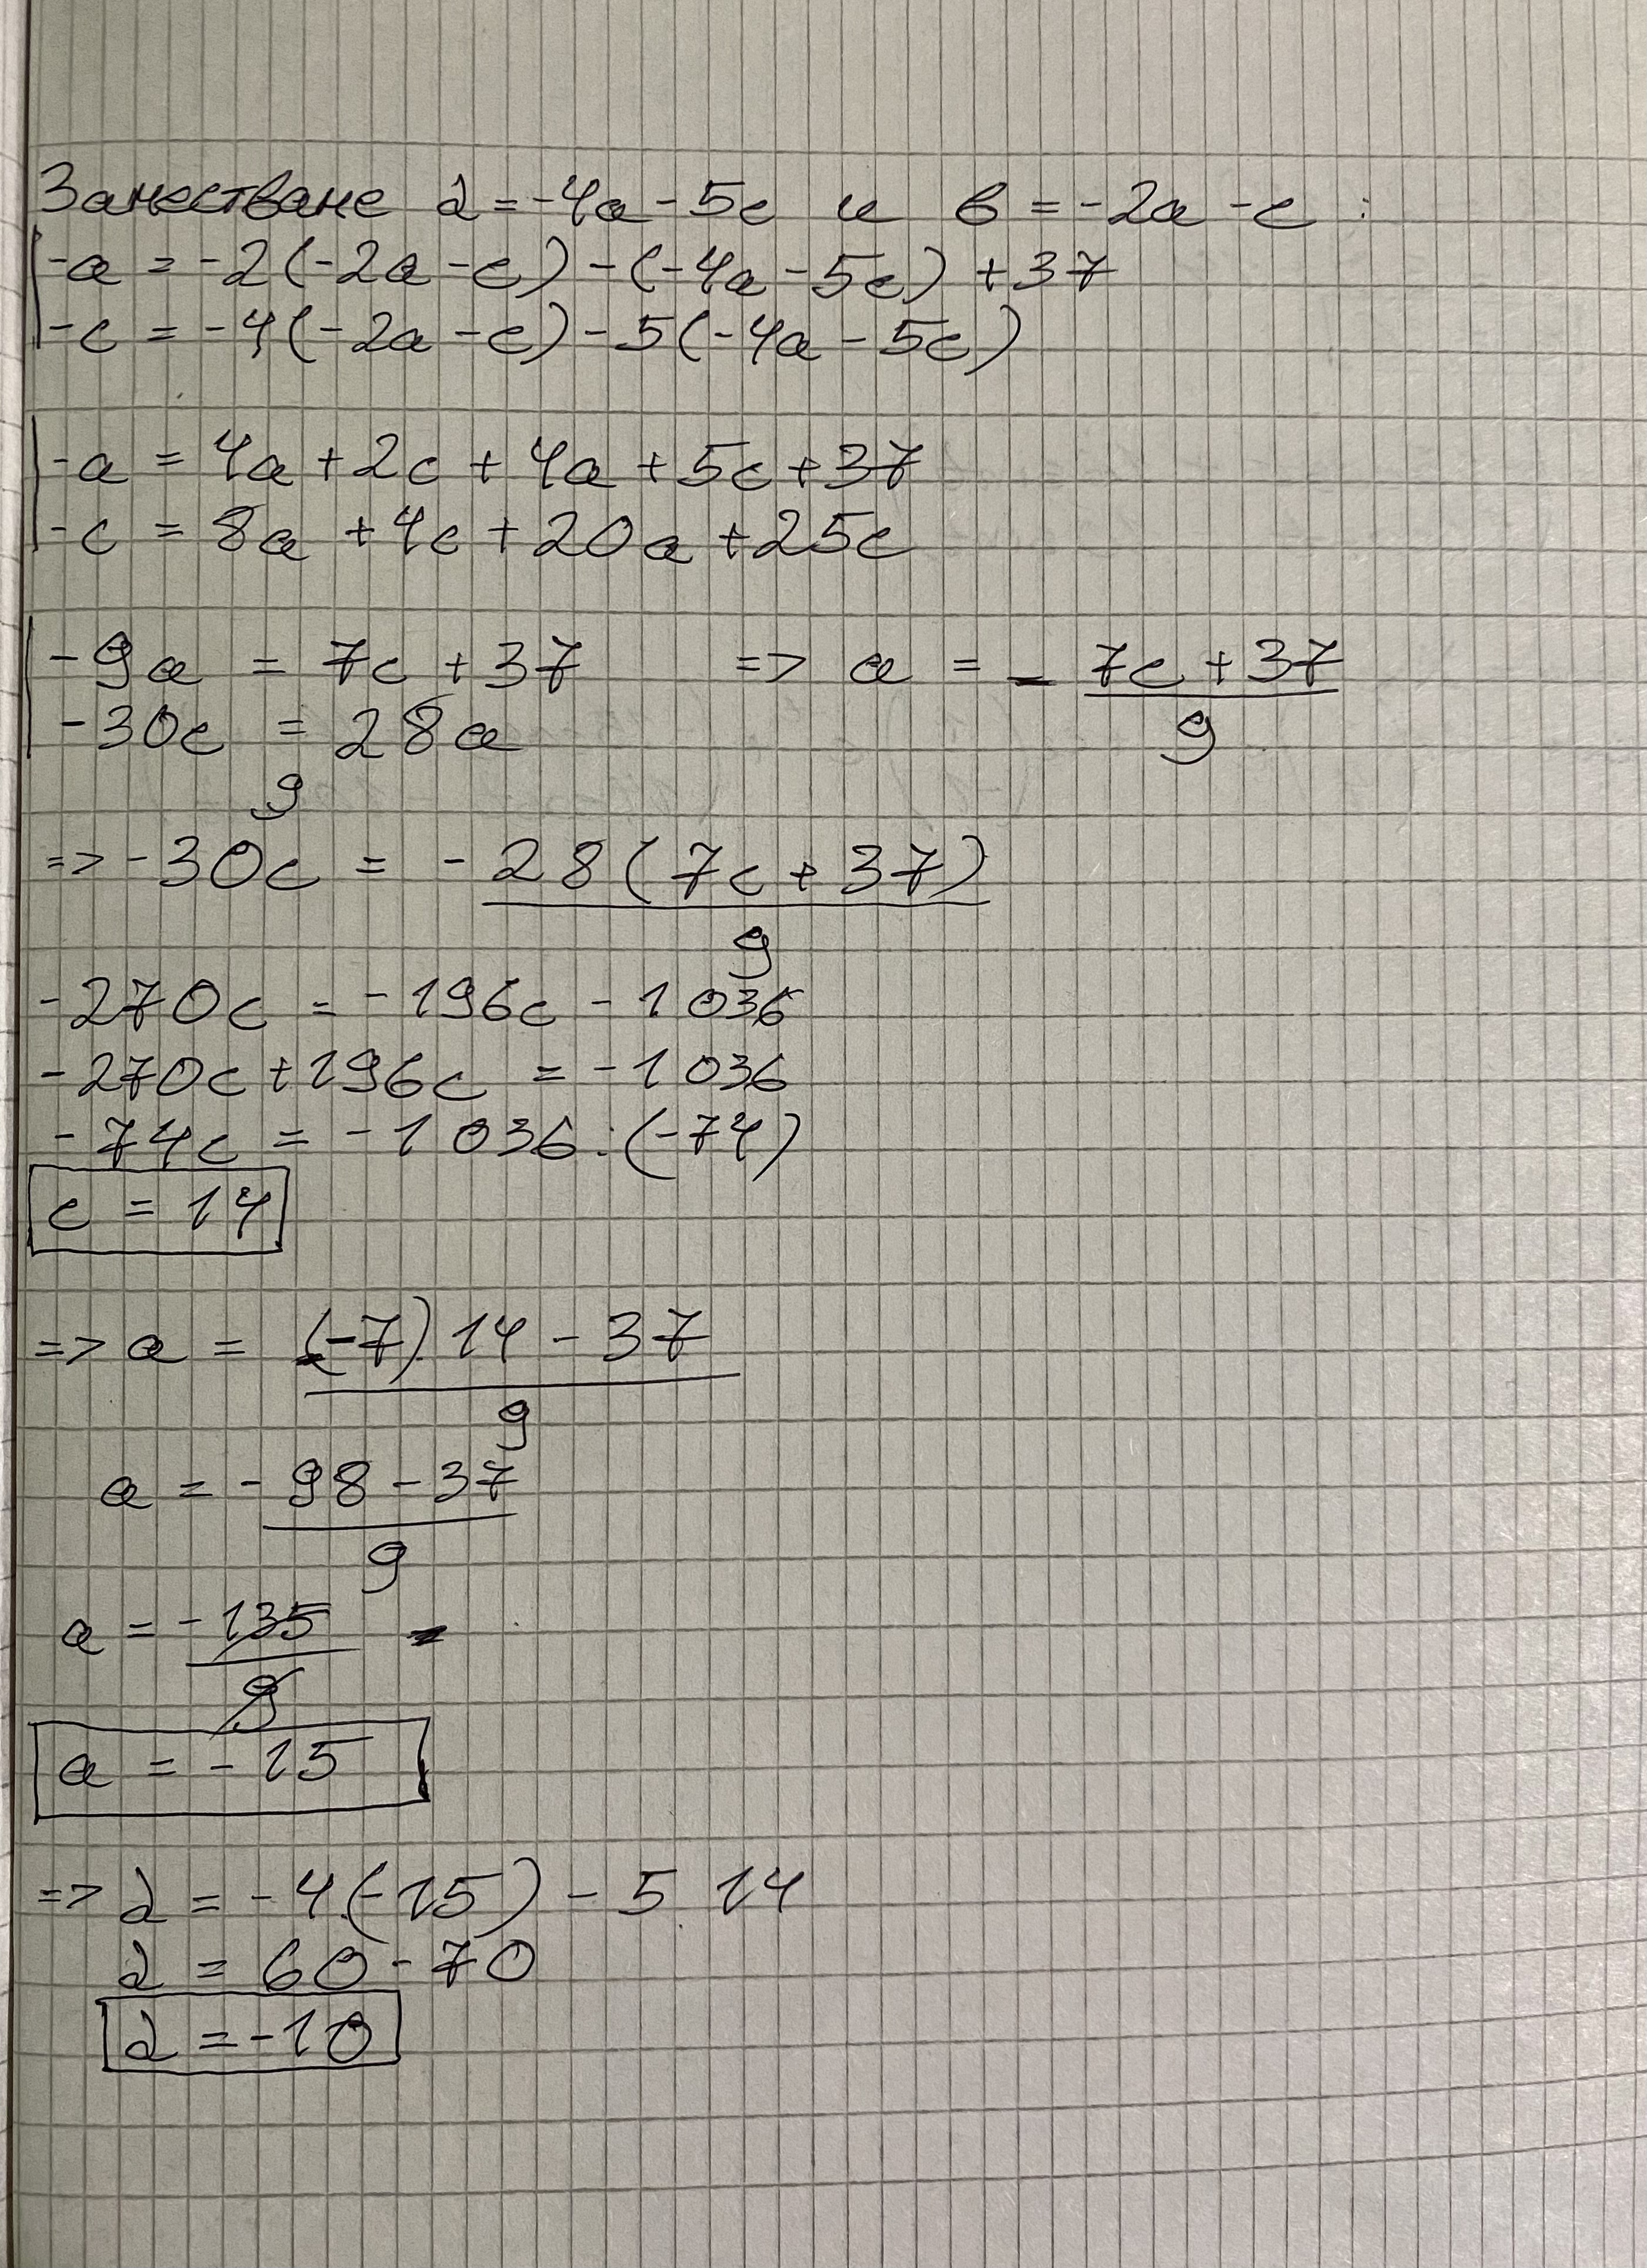 Заместваме d = -4a - 5c и b = -2a - c :
-a = -2(-2a - c) - (-4a - 5c) + 37
-c = -4(-2a - c) - 5(-4a - 5c)
-a = 4a + 2c + 4a + 5c + 37
-c = 8a + 4c + 20a + 25c
-9a = 7c + 37 => a = - 7c + 37
9
-30c = 28a
9
=> -30c = - 28(7c + 37)
9
-270c = -196c - 1036
-270c + 196c = -1036
-74c = -1036 : (-74)
c = 14
=> a = (-7).14 - 37
9
a = -98 - 37
9
a = -135
9
a = -15
=> d = -4.(-15) - 5.14
d = 60 - 70
d = -10